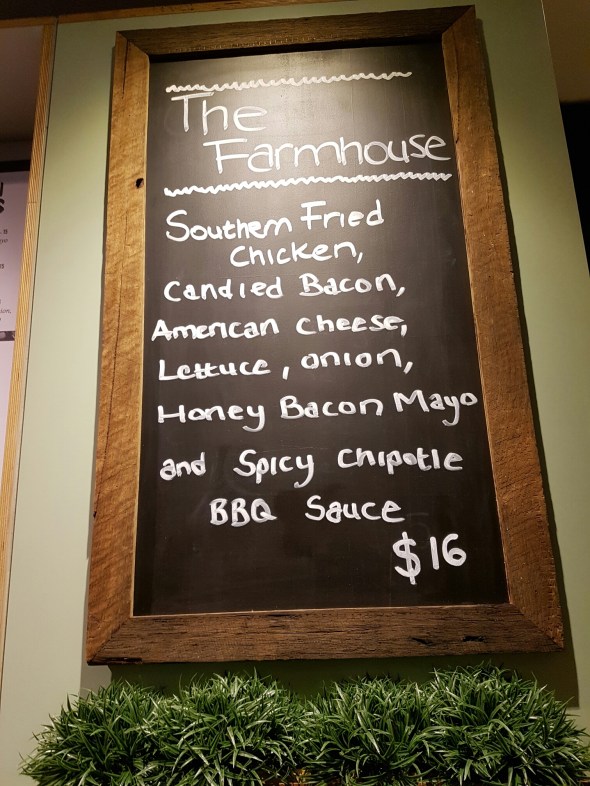 The
Farmhouse
Southern Fried
Chicken,
Candied Bacon,
American Cheese,
Lettuce, onion,
Honey Bacon Mayo
and Spicy Chipotle
BBQ Sauce
$16